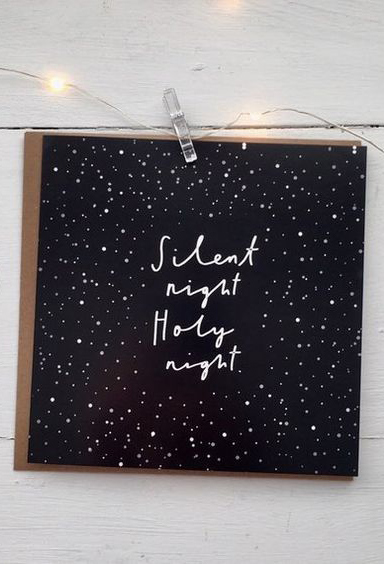 Silent
night
Holy
night.